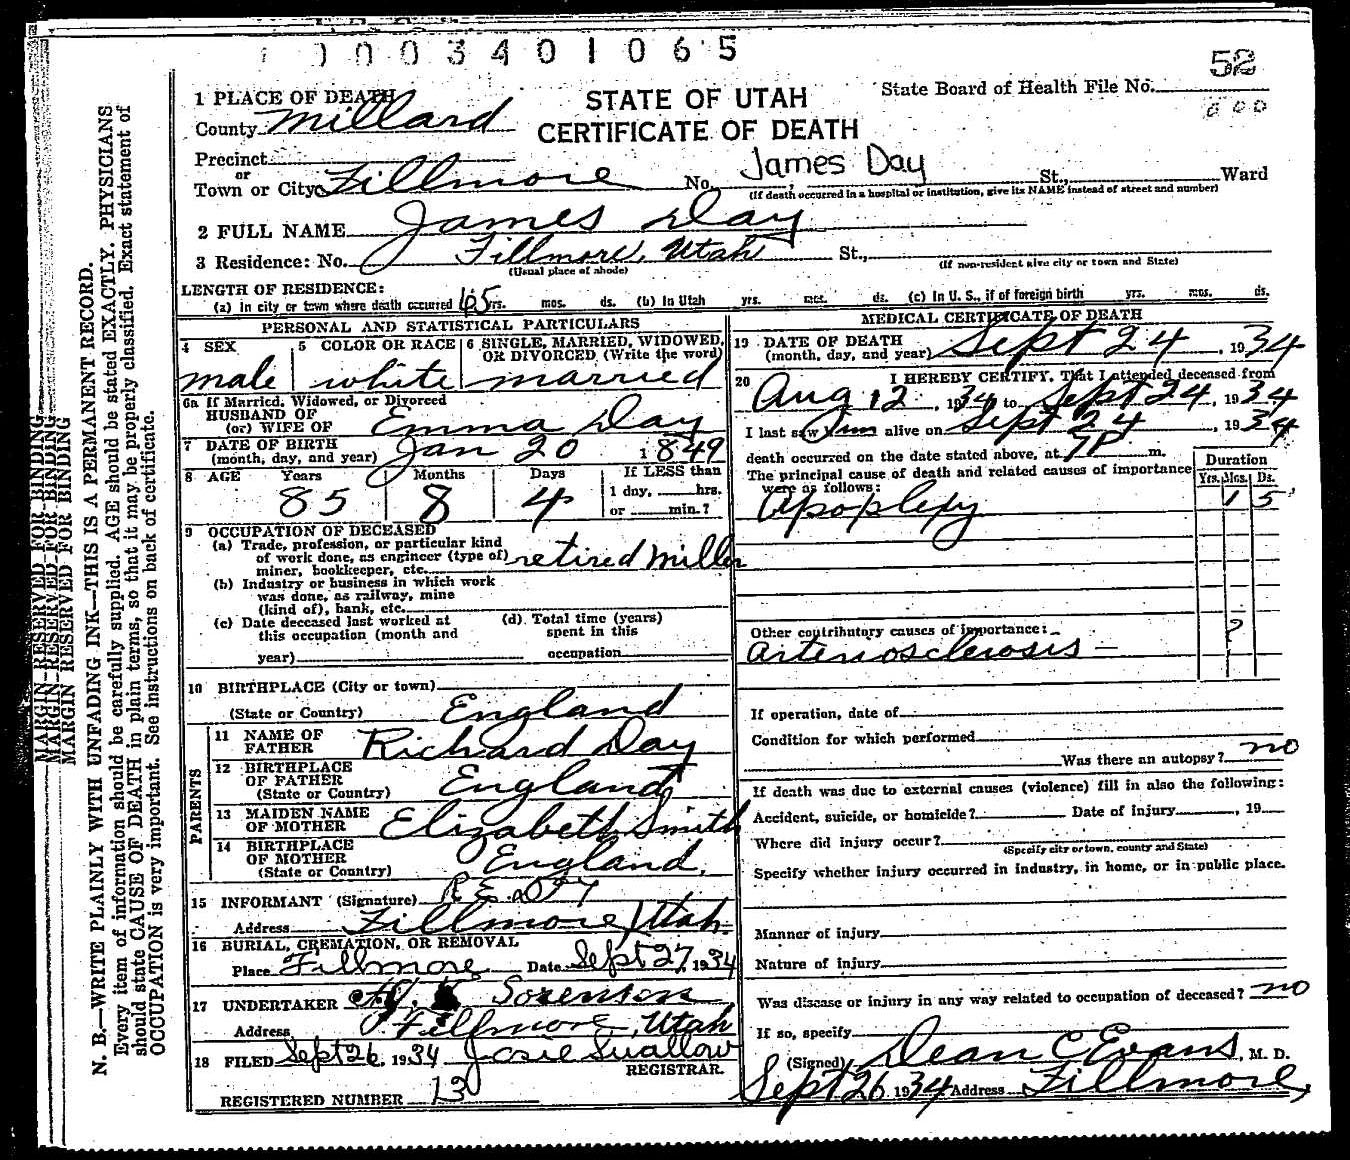 0003401065
52
State Board of Health File No.
600
STATE OF UTAH
CERTIFICATE OF DEATH
1 PLACE OF DEATH
County Millard
Precinct
or
Town or City Fillmore No. James Day St., Ward
(If death occurred in a hospital or institution, give its NAME instead of street and number)
2 FULL NAME James Day
3 Residence: No. Fillmore, Utah St.,
(Usual place of abode) (If non-resident give city or town and State)
LENGTH OF RESIDENCE:
(a) In city or town where death occurred 65 yrs. mos. ds. (b) In Utah yrs. mos. ds. (c) In U. S., if of foreign birth yrs. mos. ds.
PERSONAL AND STATISTICAL PARTICULARS
4 SEX male
5 COLOR OR RACE white
6 SINGLE, MARRIED, WIDOWED, OR DIVORCED (Write the word) married
6a If Married, Widowed, or Divorced
HUSBAND OF
(or) WIFE OF Emma Day
7 DATE OF BIRTH
(month, day, and year) Jan 20 1849
8 AGE Years 85 Months 8 Days 4
If LESS than
1 day, hrs.
or min.?
9 OCCUPATION OF DECEASED
(a) Trade, profession, or particular kind
of work done, as engineer (type of)
miner, bookkeeper, etc. retired miller
(b) Industry or business in which work
was done, as railway, mine
(kind of), bank, etc.
(c) Date deceased last worked at
this occupation (month and
year)
(d) Total time (years)
spent in this
occupation
10 BIRTHPLACE (City or town)
(State or Country) England
PARENTS
11 NAME OF
FATHER Richard Day
12 BIRTHPLACE
OF FATHER
(State or Country) England
13 MAIDEN NAME
OF MOTHER Elizabeth Smith
14 BIRTHPLACE
OF MOTHER
(State or Country) England,
15 INFORMANT (Signature)
Address Fillmore, Utah
16 BURIAL, CREMATION, OR REMOVAL
Place Fillmore Date Sept 27, 1934
17 UNDERTAKER Sorenson
Address Fillmore, Utah
18 FILED Sept 26, 1934 Josie Swallow
REGISTRAR.
REGISTERED NUMBER 13
MEDICAL CERTIFICATE OF DEATH
19 DATE OF DEATH
(month, day, and year) Sept 24, 1934
20 I HEREBY CERTIFY, That I attended deceased from
Aug 12, 1934 to Sept 24, 1934
I last saw him alive on Sept 24, 1934
death occurred on the date stated above, at 7P m.
The principal cause of death and related causes of importance
were as follows:
Duration
Yrs. Mos. Ds.
Apoplexy 1 5
Other contributory causes of importance: ?
arteriosclerosis —
If operation, date of
Condition for which performed
Was there an autopsy? no
If death was due to external causes (violence) fill in also the following:
Accident, suicide, or homicide? Date of injury, 19
Where did injury occur?
(Specify city or town, county and State)
Specify whether injury occurred in industry, in home, or in public place.
Manner of injury
Nature of injury
Was disease or injury in any way related to occupation of deceased? no
If so, specify
(Signed) Dean C Evans, M. D.
Sept 26 1934 Address Fillmore,
MARGIN RESERVED FOR BINDING
MARGIN RESERVED FOR BINDING
MARGIN RESERVED FOR BINDING
N. B.—WRITE PLAINLY WITH UNFADING INK—THIS IS A PERMANENT RECORD.
Every item of information should be carefully supplied. AGE should be stated EXACTLY. PHYSICIANS
should state CAUSE OF DEATH in plain terms, so that it may be properly classified. Exact statement of
OCCUPATION is very important. See instructions on back of certificate.